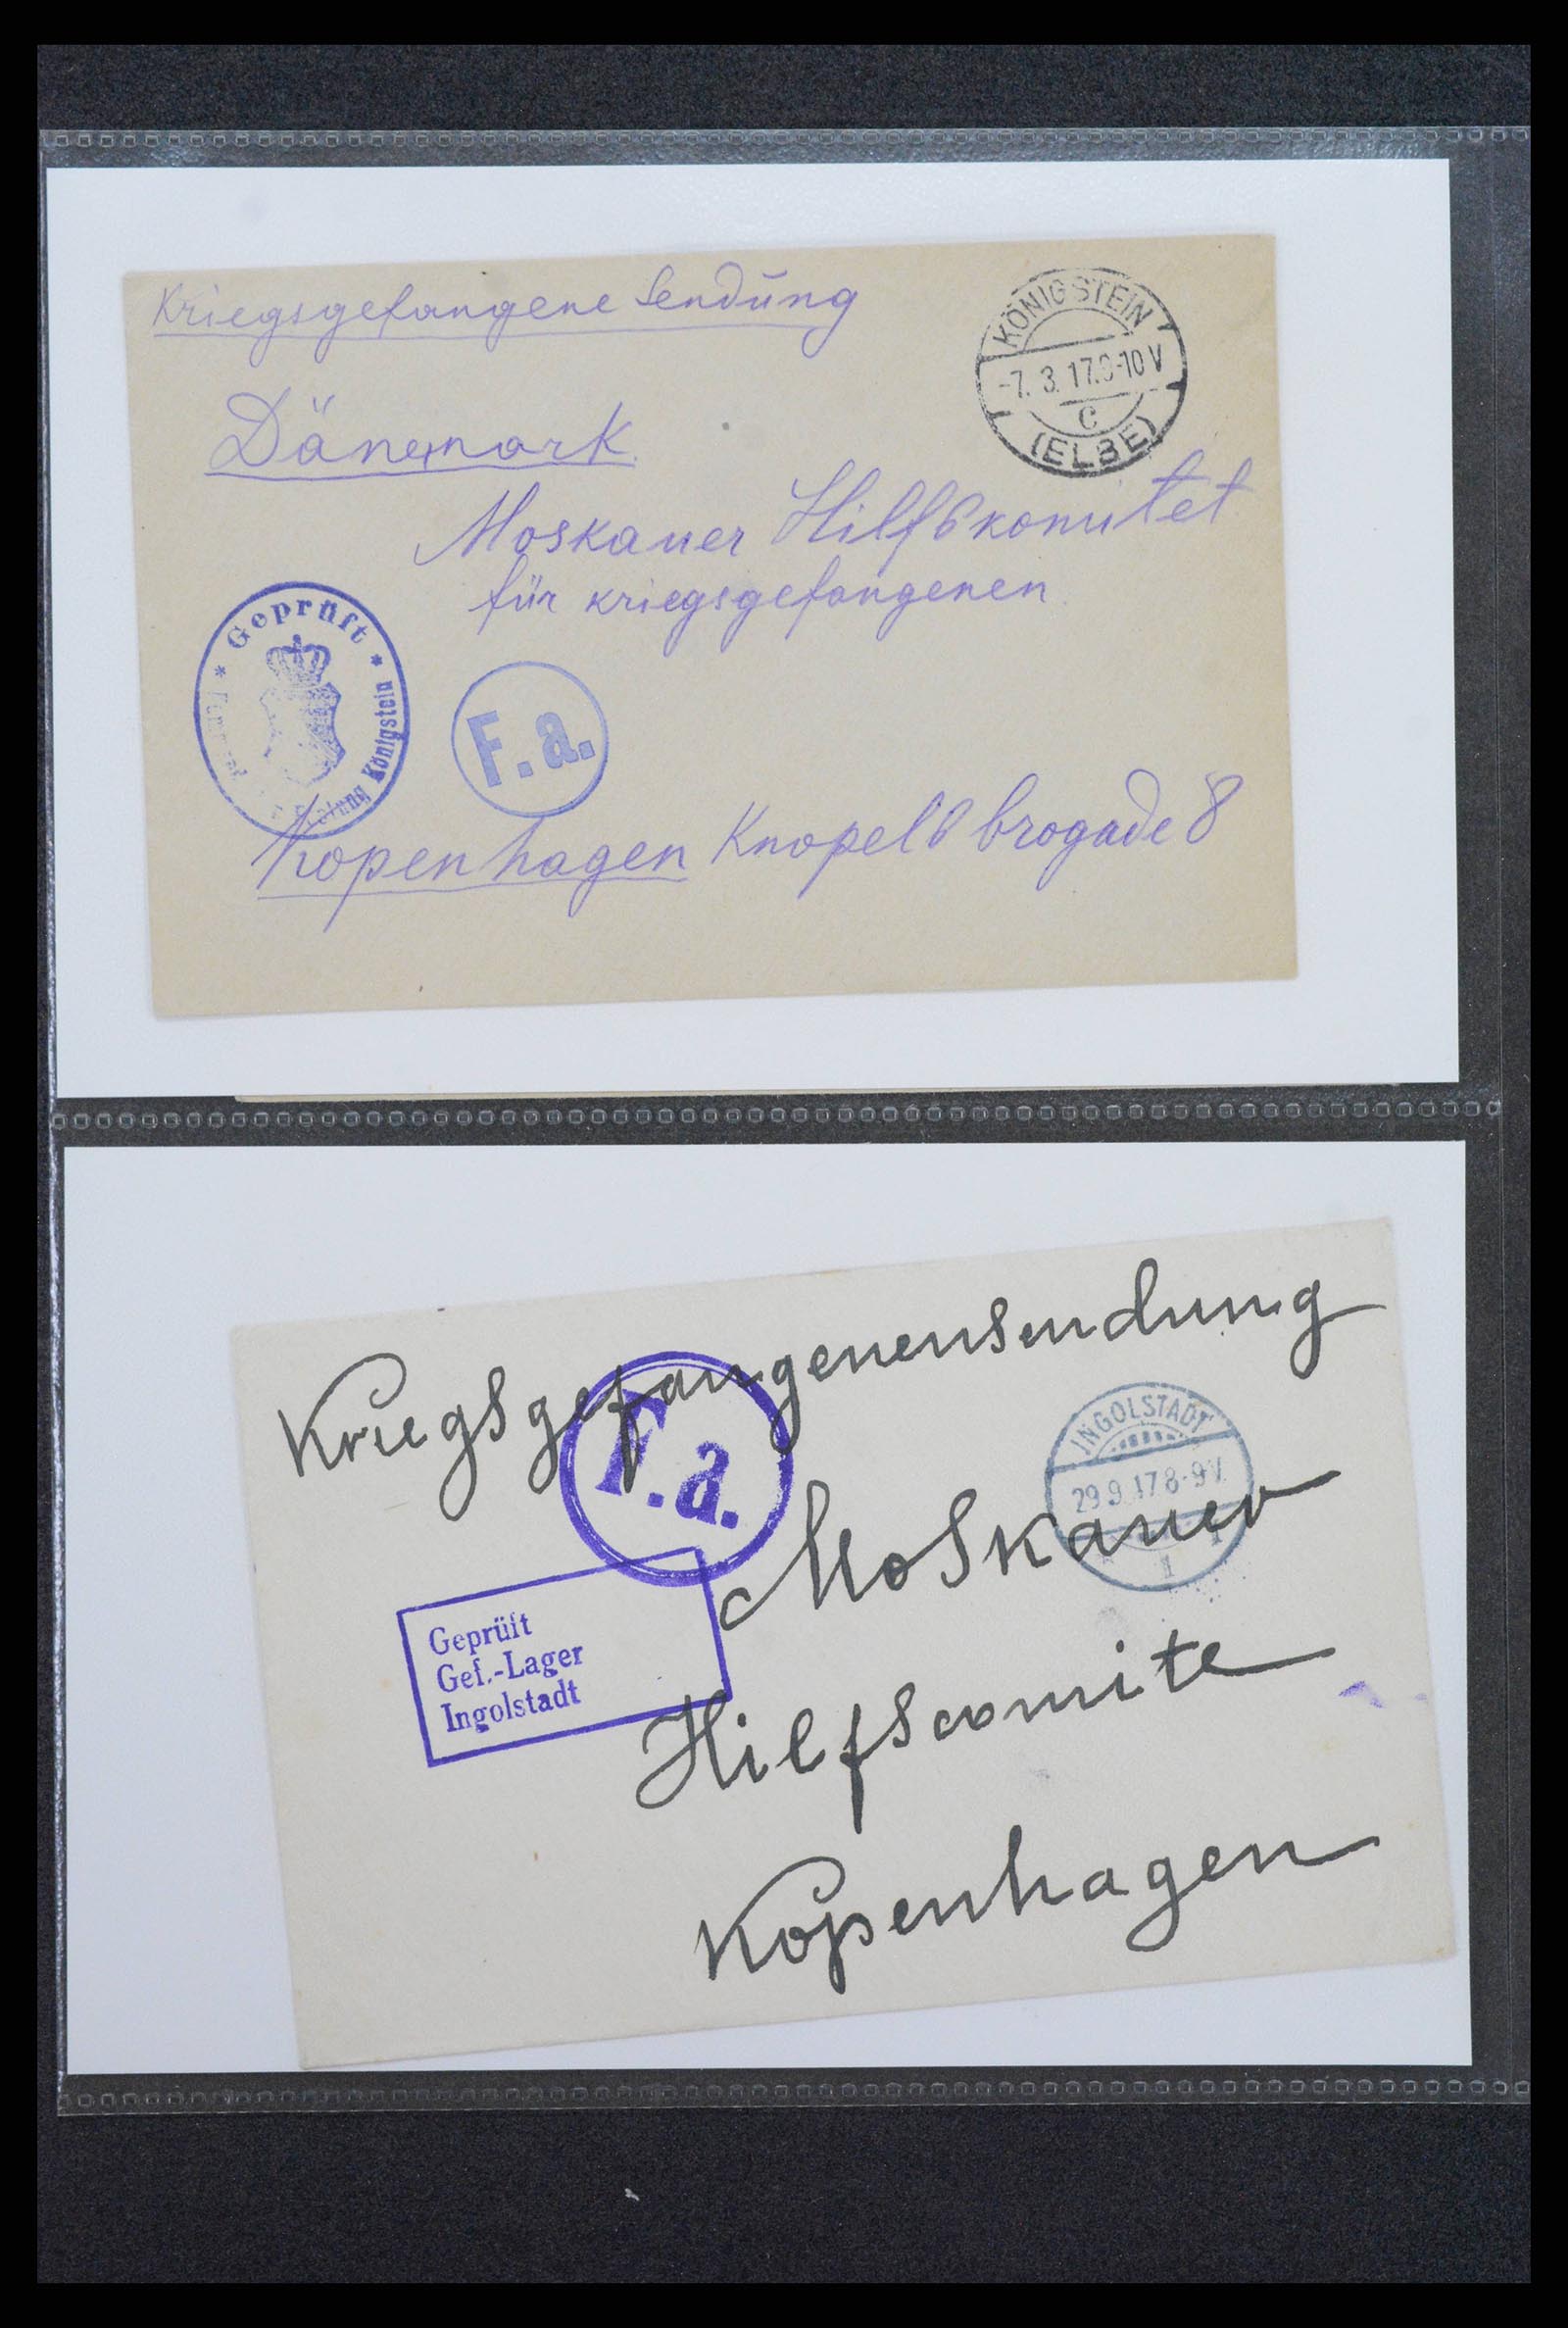 Kriegsgefangene Sendung
KÖNIGSTEIN
-7. 3. 17. -10 V
c
(ELBE)
Dänemark
Moskauer Hilfskomitet
für kriegsgefangenen
* Geprüft *
Königstein
F. a.
Kopenhagen Knopels brogade 8
Kriegsgefangenensendung
F. a.
INGOLSTADT
29 9 17 8-9 V.
1
Moskauer
Geprüft
Gef.-Lager
Ingolstadt
Hilfscomite
Kopenhagen